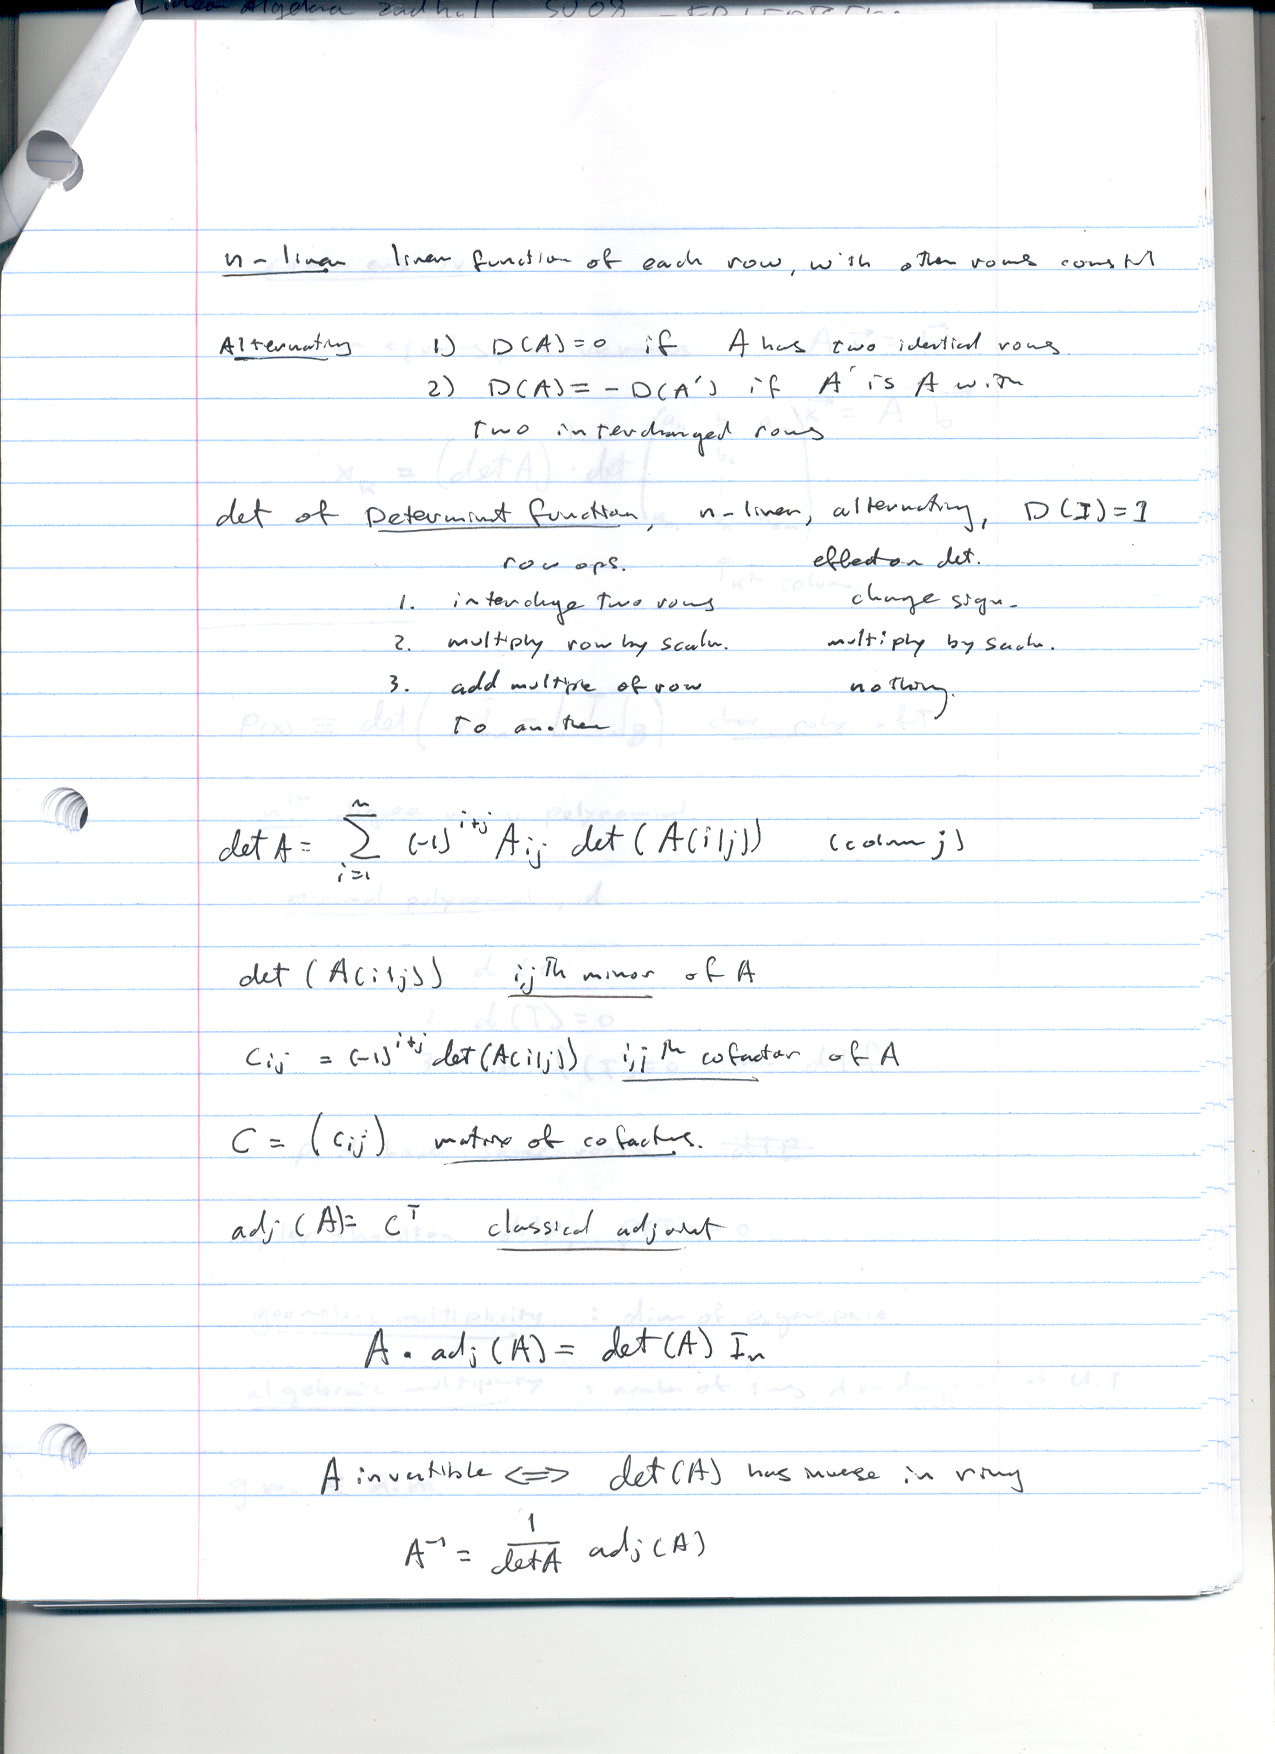 Linear Algebra 2nd half SU08
n-linear linear function of each row, with other rows const
Alternating 1) D(A)=0 if A has two identical rows
2) D(A)= -D(A') if A' is A with
two interchanged rows
det of Determinant function, n-linear, alternating, D(I)=1
row ops. effect on det.
1. interchge two rows change sign.
2. multiply row by scalar. multiply by scalar.
3. add multiple of row nothing.
to another
det A = \sum_{i=1}^{n} (-1)^{i+j} A_{ij} det(A(i|j)) (column j)
det (A(i|j)) i,jth minor of A
C_{ij} = (-1)^{i+j} det(A(i|j)) i,jth cofactor of A
C = (C_{ij}) matrix of cofactors.
adj(A)= C^T classical adjoint
A · adj(A) = det(A) I_n
A invertible <=> det(A) has inverse in ring
A^{-1} = \frac{1}{det A} adj(A)